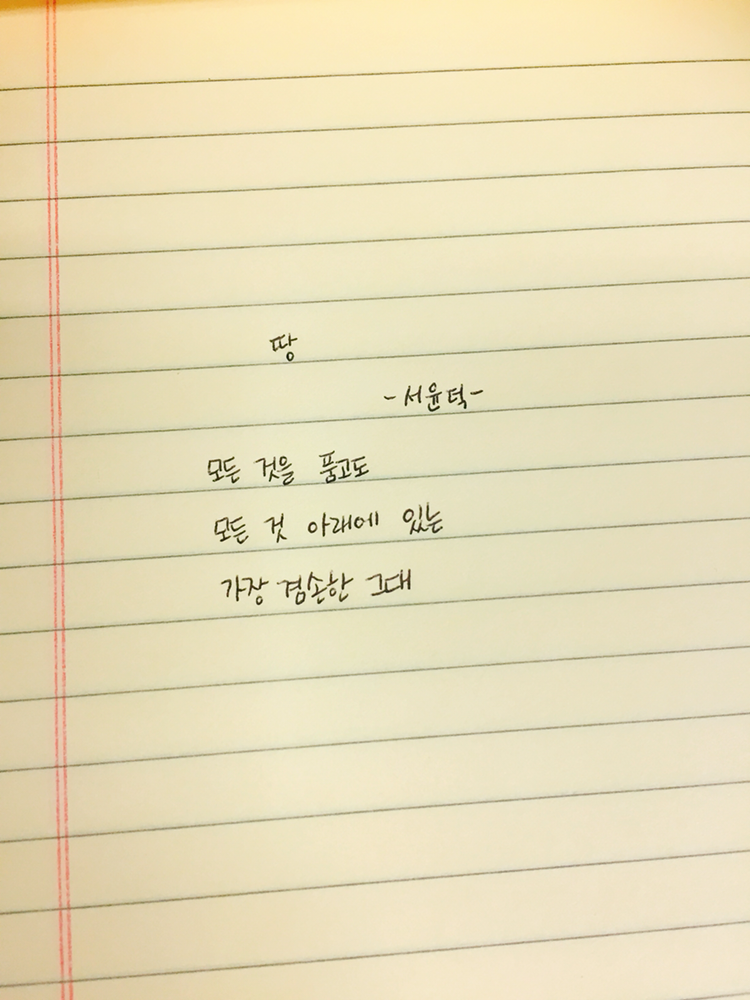 땅
-서윤덕-
모든 것을 품고도
모든 것 아래에 있는
가장 겸손한 그대